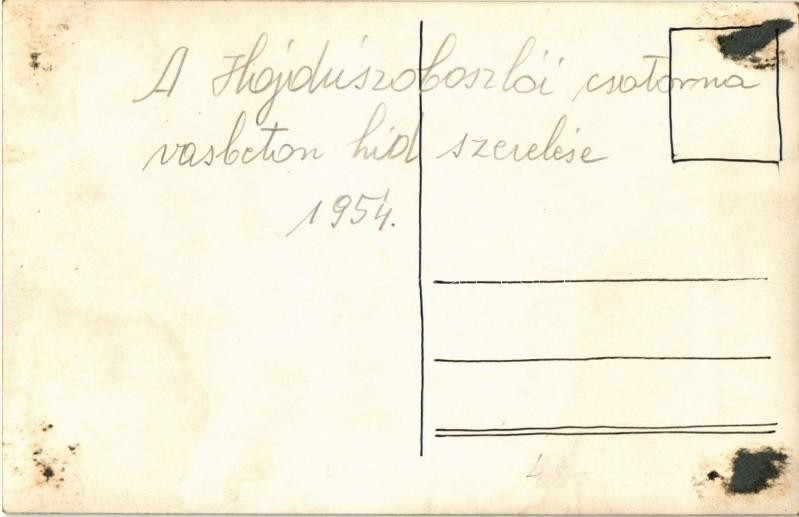 A Hajdúszoboszlói csatorna
vasbeton híd szerelése
1954.